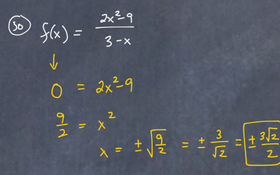 50 f(x) = (2x² - 9) / (3 - x)
↓
0 = 2x² - 9
9/2 = x²
x = ± √(9/2) = ± 3/√2 = ± 3√2/2